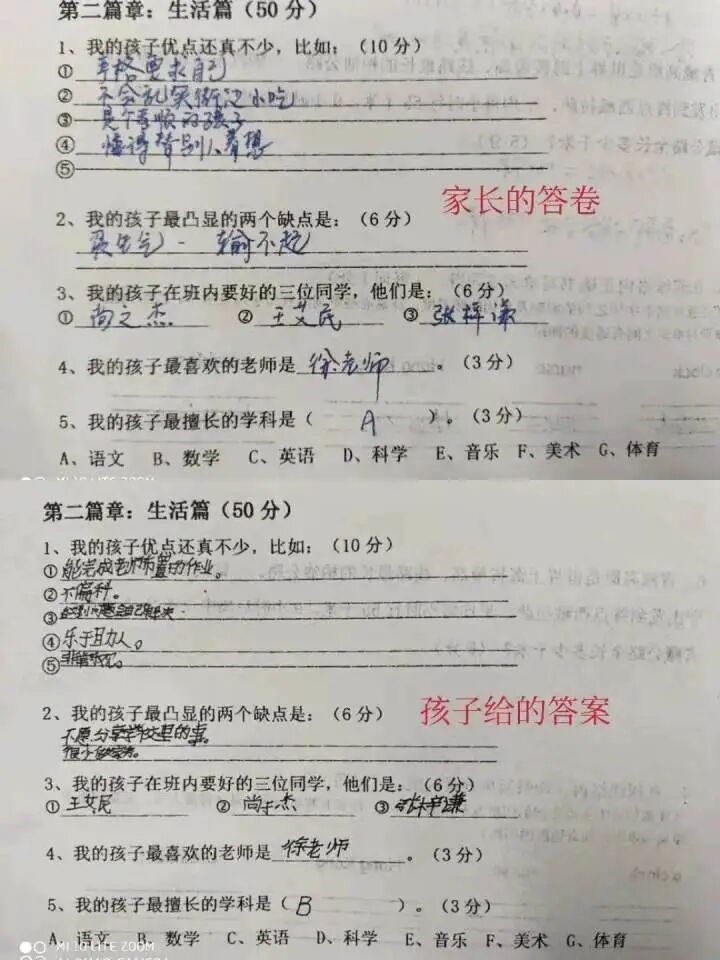 第二篇章：生活篇（50 分）
1、我的孩子优点还真不少，比如：（10 分）
① 严格要求自己
② 不会乱买街边小吃
③ 是个孝顺的孩子
④ 懂得替别人着想
⑤
家长的答卷
2、我的孩子最凸显的两个缺点是：（6 分）
爱生气 - 输不起
3、我的孩子在班内要好的三位同学，他们是：（6分）
① 尚之杰 ② 王艾民 ③ 张梓谦
4、我的孩子最喜欢的老师是 徐老师 。（3 分）
5、我的孩子最擅长的学科是（ A ）。（3 分）
A、语文 B、数学 C、英语 D、科学 E、音乐 F、美术 G、体育
第二篇章：生活篇（50 分）
1、我的孩子优点还真不少，比如：（10 分）
① 能完成老师布置的作业。
② 不偏科。
③ 自己解决
④ 乐于助人。
⑤
2、我的孩子最凸显的两个缺点是：（6 分）
孩子给的答案
不愿分享学校里的事。
很少做家务。
3、我的孩子在班内要好的三位同学，他们是：（6分）
① 王艾民 ② 尚于杰 ③ 张梓谦
4、我的孩子最喜欢的老师是 徐老师 。（3 分）
5、我的孩子最擅长的学科是（ B ）。（3 分）
A、语文 B、数学 C、英语 D、科学 E、音乐 F、美术 G、体育
MI 10 LITE ZOOM